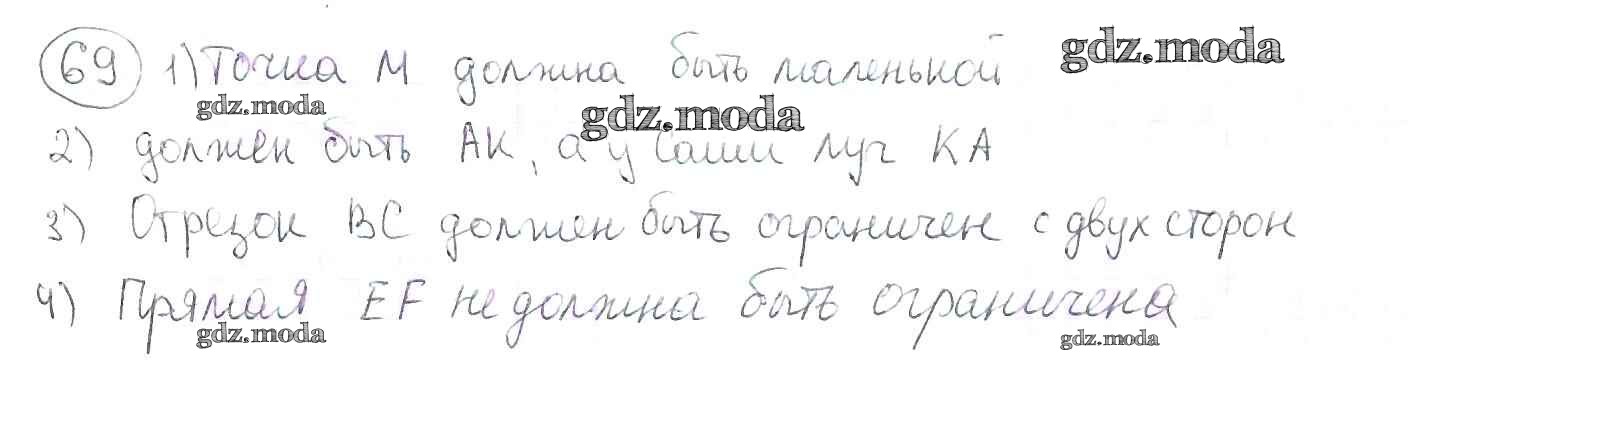 69 1) Точка М должна быть маленькой
gdz.moda
gdz.moda
gdz.moda
2) должен быть АК, а у Саши луч КА
3) Отрезок ВС должен быть ограничен с двух сторон
4) Прямая EF не должна быть ограничена
gdz.moda
gdz.moda